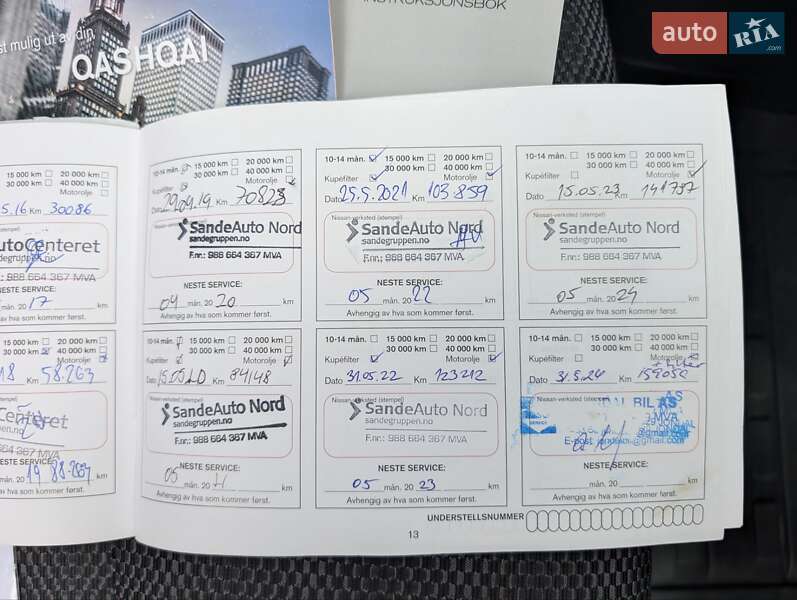 INSTRUKSJONSBOK
auto RIA.com
st mulig ut av din
QASHQAI
15 000 km 20 000 km
30 000 km 40 000 km
Motorolje
5.16 Km 30086
utoCenteret
degruppen.no
F.nr.: 988 664 367 MVA
NESTE SERVICE:
mån. 20 17 km
Avhengig av hva som kommer først.
10-14 mån. 15 000 km 20 000 km
30 000 km 40 000 km
Kupéfilter Motorolje
Dato 29.09.19 Km 70823
Nissan-verksted (stempel)
SandeAuto Nord
sandegruppen.no
F.nr.: 988 664 367 MVA
NESTE SERVICE:
09 mån. 20 20 km
Avhengig av hva som kommer først.
10-14 mån. 15 000 km 20 000 km
30 000 km 40 000 km
Kupéfilter Motorolje
Dato 25.5.2021 Km 103 859
Nissan-verksted (stempel)
SandeAuto Nord
sandegruppen.no
F.nr.: 988 664 367 MVA
NESTE SERVICE:
05 mån. 20 22 km
Avhengig av hva som kommer først.
10-14 mån. 15 000 km 20 000 km
30 000 km 40 000 km
Kupéfilter Motorolje
Dato 15.05.23 Km 141737
Nissan-verksted (stempel)
SandeAuto Nord
sandegruppen.no
F.nr.: 988 664 367 MVA
NESTE SERVICE:
05 mån. 20 24 km
Avhengig av hva som kommer først.
15 000 km 20 000 km
30 000 km 40 000 km
Motorolje
18 Km 58.263
Nissan-verksted (stempel)
Centeret
NESTE SERVICE:
mån. 20 19 88.263 km
Avhengig av hva som kommer først.
10-14 mån. 15 000 km 20 000 km
30 000 km 40 000 km
Kupéfilter Motorolje
Dato Km 84148
Nissan-verksted (stempel)
SandeAuto Nord
sandegruppen.no
F.nr.: 988 664 367 MVA
NESTE SERVICE:
05 mån. 20 km
Avhengig av hva som kommer først.
10-14 mån. 15 000 km 20 000 km
30 000 km 40 000 km
Kupéfilter Motorolje
Dato 31.05.22 Km 123212
Nissan-verksted (stempel)
SandeAuto Nord
sandegruppen.no
F.nr.: 988 664 367 MVA
NESTE SERVICE:
05 mån. 20 23 km
Avhengig av hva som kommer først.
10-14 mån. 15 000 km 20 000 km
30 000 km 40 000 km
Kupéfilter Motorolje
Dato 31.5.24 Km
Nissan-verksted (stempel)
BIL AS
MVA
E-post
NESTE SERVICE:
mån. 20 km
Avhengig av hva som kommer først.
UNDERSTELLSNUMMER
13